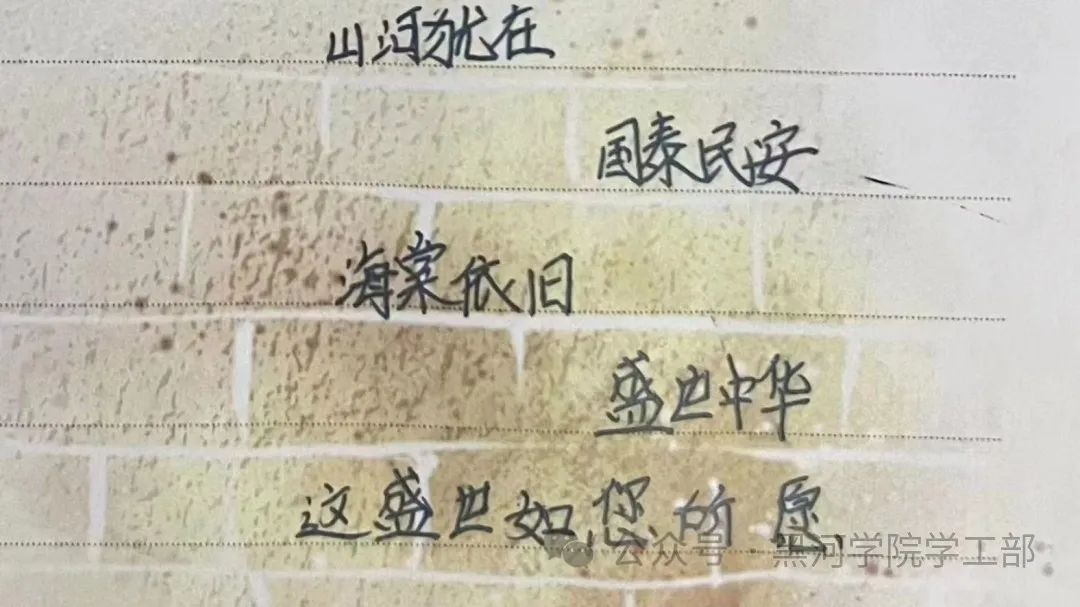 山河犹在
国泰民安
海棠依旧
盛世中华
这盛世如您所愿
公众号·黑河学院学工部